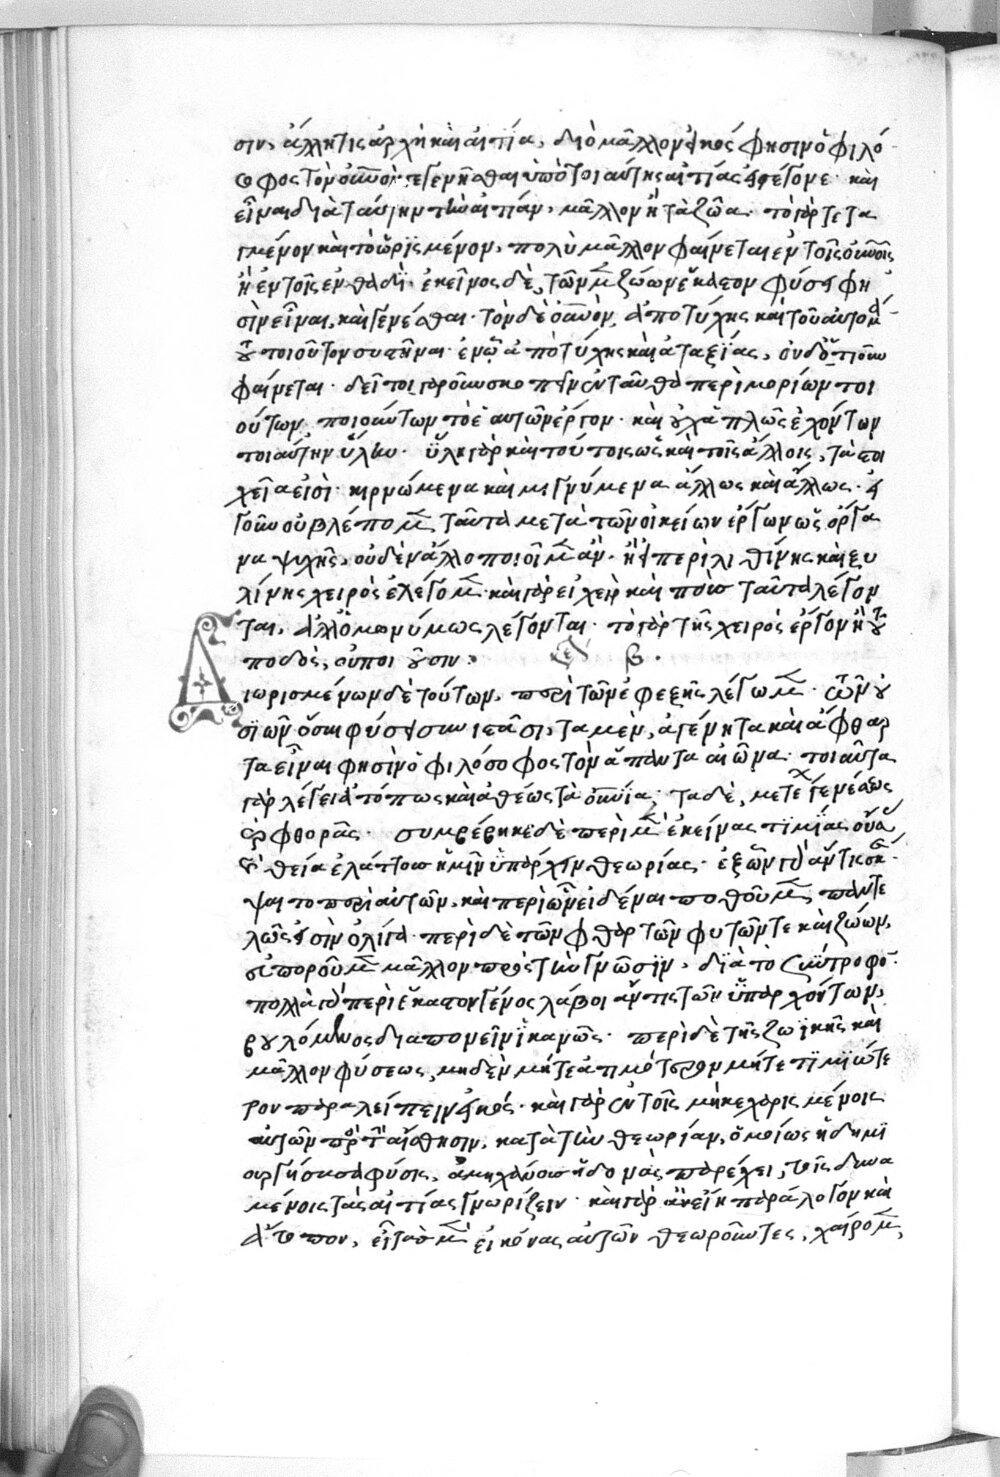 σιν, ἄλλη τις ἀρχὴ καὶ αἰτία, διὸ μᾶλλον εἰκός φησιν ὁ φιλό
σοφος τὸν οὐρανὸν γεγενῆσθαι ὑπὸ τοιαύτης αἰτίας εἰ γέγονε· καὶ
εἶναι διὰ ταύτην τὴν αἰτίαν, μᾶλλον ἢ τὰ ζῶα· τὸ γὰρ τετα
γμένον καὶ τὸ ὡρισμένον, πολὺ μᾶλλον φαίνεται ἐν τοῖς οὐρανίοις
ἢ ἐν τοῖς ἐνθαδί· ἐκεῖνος δὲ, τῶν μὲν ζώων ἕκαστον φύσει φη
σὶν εἶναι, καὶ γενέσθαι· τὸν δὲ οὐρανὸν, ἀπὸ τύχης καὶ τοῦ αὐτομά
του τοιοῦτον συστῆναι· ἐν ᾧ ἀπὸ τύχης καὶ ἀταξίας, οὐδ' ὁτιοῦν
φαίνεται· δεῖ τοιγαροῦν σκοπεῖν ἐνταῦθα περὶ μορίων τοι
ούτων, ποιούντων τὸ ἑαυτῶν ἔργον· καὶ οὐχ ἁπλῶς ἐχόντων
τοιαύτην ὕλην· ὕλη γὰρ καὶ τούτοις ὡς καὶ τοῖς ἄλλοις, τὰ στοι
χεῖα εἰσὶ· κιρνώμενα καὶ μιγνύμενα ἄλλως καὶ ἄλλως· εἰ
γοῦν οὐ βλέπομεν ταῦτα μετὰ τῶν οἰκείων ἔργων ὡς ὄργα
να ψυχῆς, οὐδὲν ἄλλο ποιοῖμεν ἂν· ἢ εἰ περὶ λιθίνης καὶ ξυ
λίνης χειρὸς ἐλέγομεν· καὶ γὰρ εἰ χεὶρ καὶ ποὺς ταῦτα λέγον
ται, ἀλλ' ὁμωνύμως λέγονται· τὸ γὰρ τῆς χειρὸς ἔργον ἢ τοῦ
ποδὸς, οὐ ποιοῦσιν:
Διωρισμένων δὲ τούτων, περὶ τῶν ἐφεξῆς λέγωμεν· τῶν οὐ
σιῶν ὅσαι φύσει συνιστᾶσι, τὰ μὲν, ἀγένητα καὶ ἄφθαρ
τα εἶναι φησὶν ὁ φιλόσοφος τὸν ἅπαντα αἰῶνα· τοιαῦτα
γὰρ λέγει ἀτόπως καὶ ἀθέως τὰ οὐράνια· τὰ δὲ, μετέχειν γενέσεως
καὶ φθορᾶς· συμβέβηκε δὲ περὶ μὲν ἐκείνας τιμίας οὔσας
καὶ θεία ἐλάττους ἡμῖν ὑπάρχειν θεωρίας· ἐξ ὧν γὰρ ἄν τις σκέ
ψαιτο περὶ αὐτῶν, καὶ περὶ ὧν εἰδέναι ποθοῦμεν, παντε
λῶς εἰσὶν ὀλίγα· περὶ δὲ τῶν φθαρτῶν φυτῶν τε καὶ ζώων,
εὐποροῦμεν μᾶλλον πρὸς τὴν γνῶσιν, διὰ τὸ σύντροφον·
πολλὰ γὰρ περὶ ἕκαστον γένος λάβοι ἄν τις τῶν ὑπαρχόντων,
βουλόμενος διαπονεῖν ἱκανῶς· περὶ δὲ τῆς ζωϊκῆς καὶ
μᾶλλον φύσεως, μηδὲν μήτε ἀτιμότερον μήτε τιμιώτε
ρον παραλείπειν εἰκός· καὶ γὰρ ἐν τοῖς μὴ κεχαρισμένοις
αὐτῶν πρὸς τὴν αἴσθησιν, κατὰ τὴν θεωρίαν, ὁμοίως ἡ δημι
ουργήσασα φύσις, ἀμηχάνους ἡδονὰς παρέχει, τοῖς δυνα
μένοις τὰς αἰτίας γνωρίζειν· καὶ γὰρ ἂν εἴη παράλογον καὶ
ἄτοπον, εἰ τὰς μὲν εἰκόνας αὐτῶν θεωροῦντες, χαίρομεν,